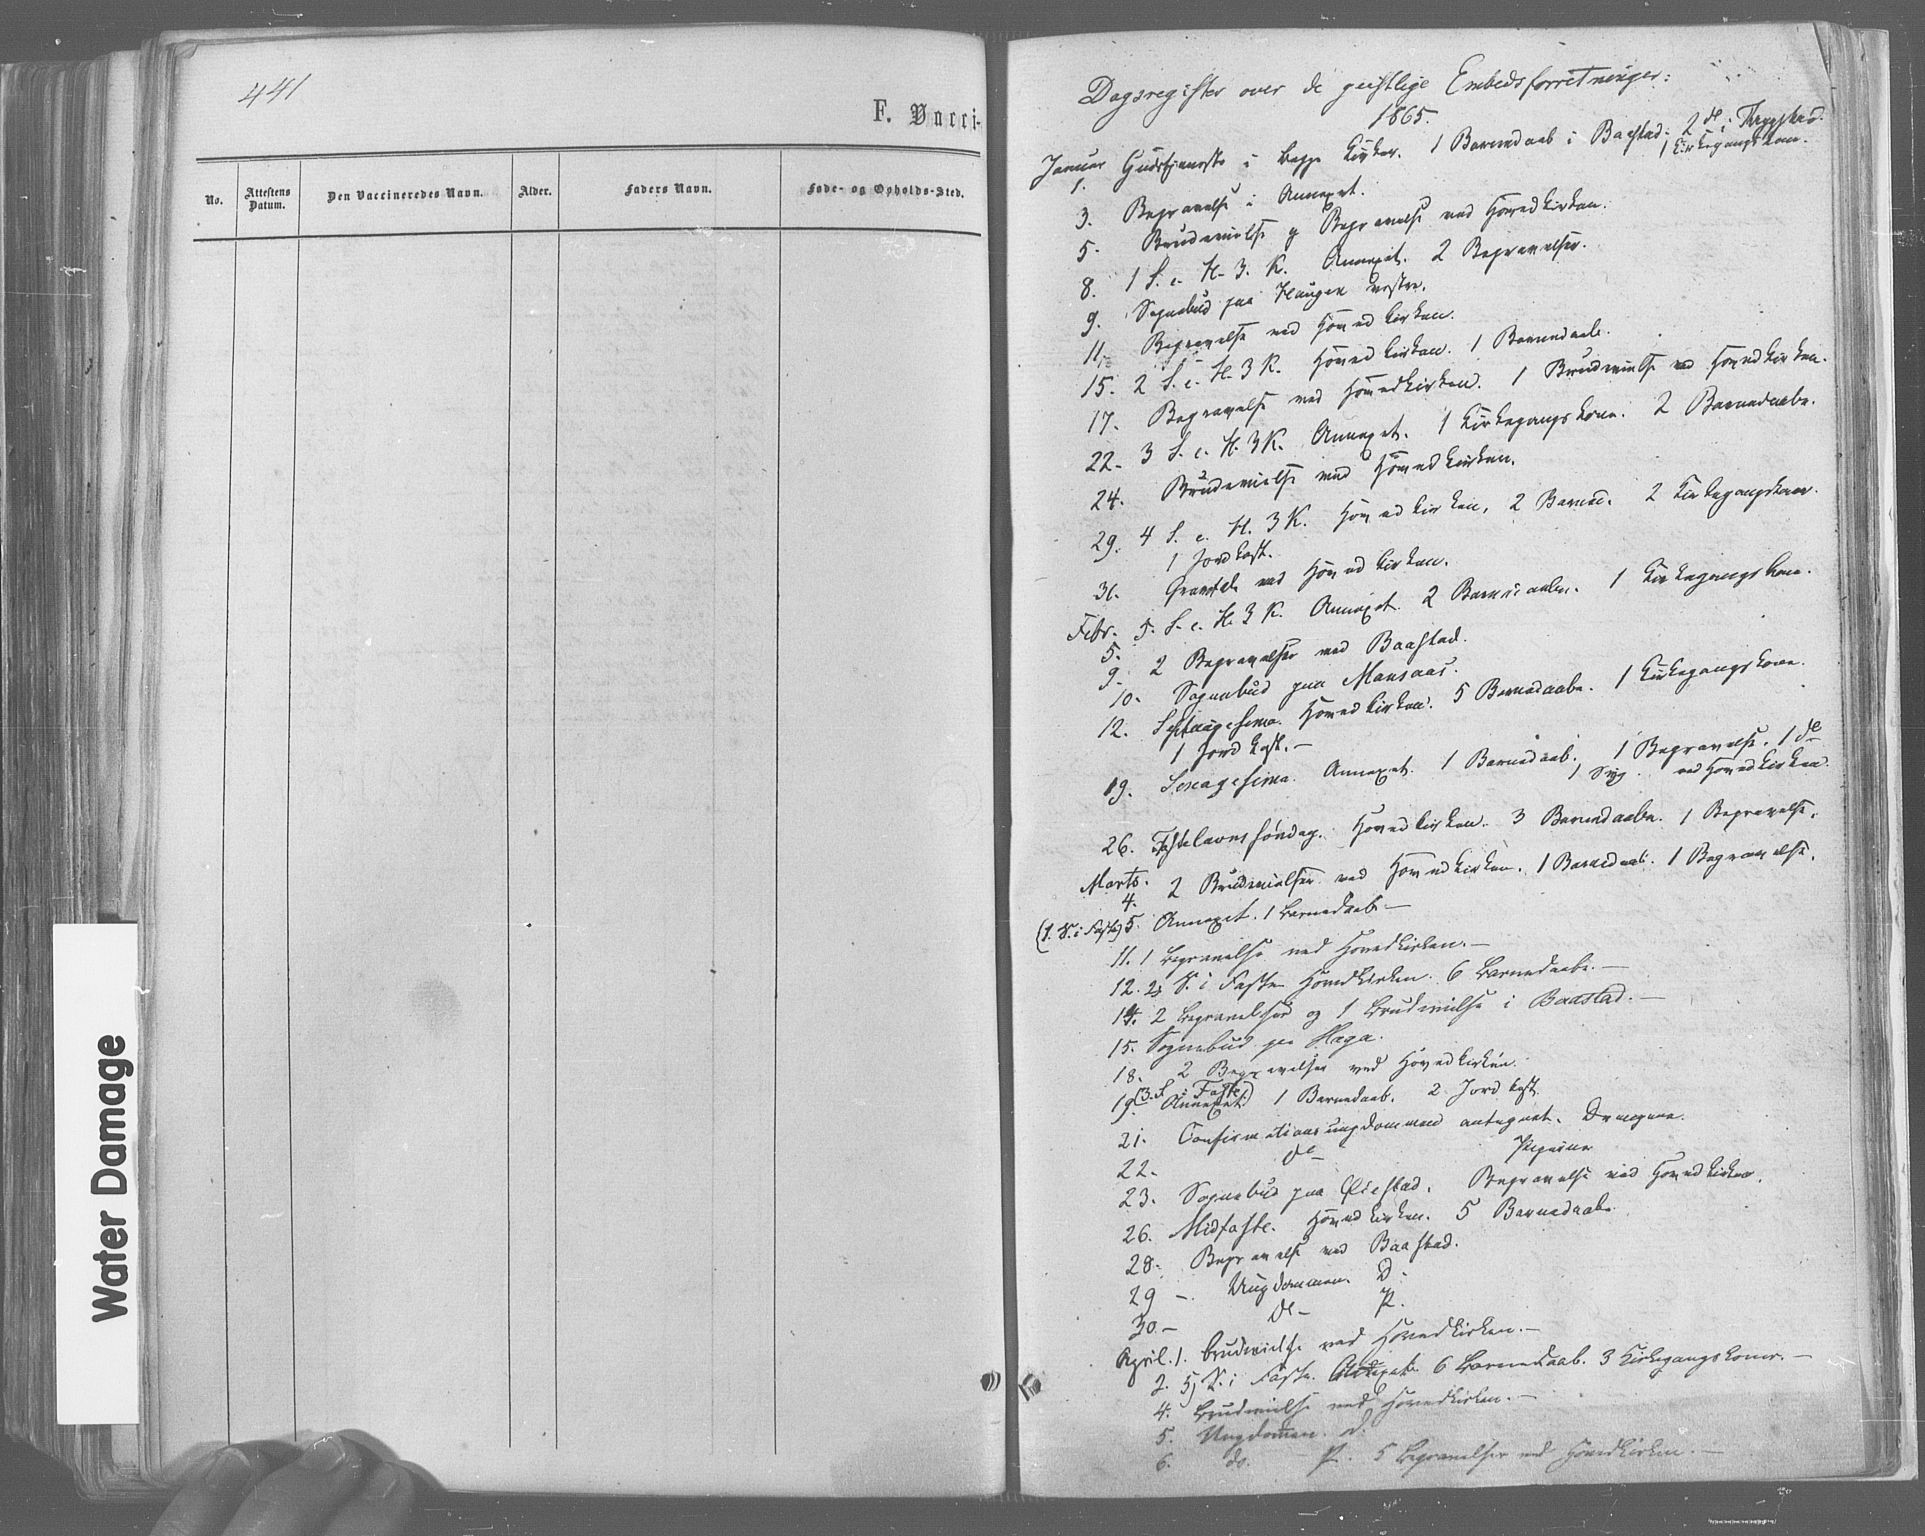 441
F. Vacci-
No.
Attestens Datum.
Den Vaccineredes Navn.
Alder.
Faders Navn.
Føde- og Opholds-Sted.
Water Damage
Dagsregister over de geistlige Embedsforretninger:
1865.
Januar 1. Gudstjeneste i begge Kirker. 1 Barnedaab i Baastad. 2 do i Trygstad.
1 Kirkegangskone.
3. Begravelse i Annexet.
5. Brudevielse og Begravelse ved Hovedkirken.
8. 1 S. e. H. 3. K. Annexet. 2 Begravelser.
9. Sognebud paa Haugen vestre.
11. Begravelse ved Hovedkirken.
15. 2 S. e. H. 3 K. Hovedkirken. 1 Barnedaab.
17. Begravelse ved Hovedkirken. 1 Brudevielse ved Hovedkirken.
22. 3 S. e. H. 3 K. Annexet. 1 Kirkegangskone. 2 Barnedaabe.
24. Brudevielse ved Hovedkirken.
29. 4 S. e. H. 3 K. Hovedkirken, 2 Barned. 2 Kirkegangskoner.
1 Jordkast.
31. ved Hovedkirken.
Febr. 5. 5. S. e. H. 3 K. Annexet. 2 Barnedaabe. 1 Kirkegangskone.
9. 2 Begravelser ved Baastad.
10. Sognebud paa Monsaas.
12. Septuagesima. Hovedkirken. 5 Barnedaabe. 1 Kirkegangskone.
1 Jordkast. —
19. Sexagesima. Annexet. 1 Barnedaab. 1 Begravelse. 1 do
ved Hovedkirken.
26. Fastelavnssøndag. Hovedkirken. 3 Barnedaabe. 1 Begravelse.
Marts. 4. 2 Brudevielser ved Hovedkirken. 1 Barnedaab. 1 Begravelse.
(1. S. i Faste) 5. Annexet. 1 Barnedaab —
11. 1 Begravelse ved Hovedkirken. —
12. 2 S. i Faste Hovedkirken. 6 Barnedaabe. —
14. 2 Begravelser og 1 Brudevielse i Baastad. —
15. Sognebud paa Haga.
18. 2 Begravelser ved Hovedkirken.
19. (3. S. i Faste) Annexet. 1 Barnedaab. 2 Jordkast
21. Confirmationsungdommen antegnet. Drengene.
22. do — Pigerne
23. Sognebud paa Øiestad. Begravelse ved Hovedkirken.
26. Midfaste. Hovedkirken. 5 Barnedaabe
28. Begravelse ved Baastad.
29 —. Ungdommen. D.
30 — do — P.
April. 1. Brudevielse ved Hovedkirken. —
2. 5 S. i Faste. Annexet. 6 Barnedaab. 3 Kirkegangskoner. —
4. Brudevielse ved Hovedkirken. —
5. Ungdommen. D.
6. do. P. 5 Begravelser ved Hovedkirken. —